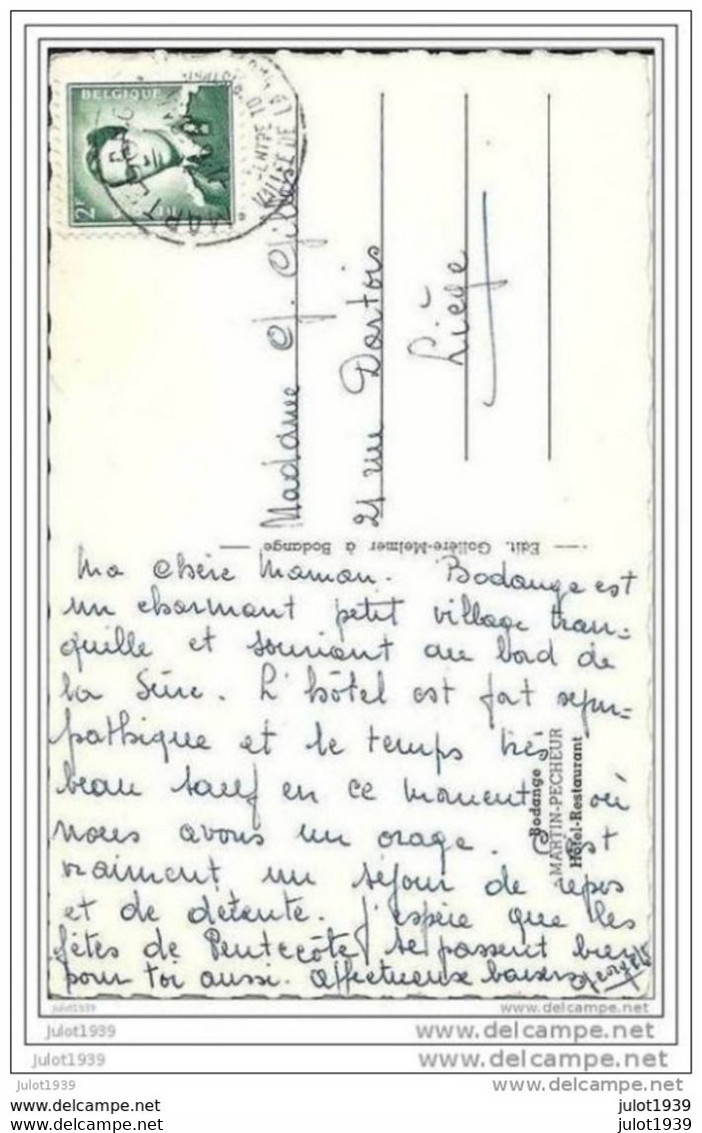 BELGIQUE
2F
MARTELANGE
CENTRE TO
VALLEE DE L
Madame J. Gillos
21 rue Dartois
Liège
Edit. Golière-Melmer à Bodange
Ma chère Maman. Bodange est
un charmant petit village tran-
quille et souriant au bord de
la Sûre. L'hôtel est fort sym-
pathique et le temps très
beau sauf en ce moment où
nous avons un orage. C'est
vraiment un séjour de repos
et de détente. J'espère que les
fêtes de Pentecôte se passent bien
pour toi aussi. Affectueux baisers
Bodange
MARTIN-PECHEUR
Hôtel-Restaurant
julot1939 www.delcampe.net
julot1939 www.delcampe.net
julot1939 www.delcampe.net
julot1939 www.delcampe.net
www.delcampe.net julot1939
www.delcampe.net julot1939